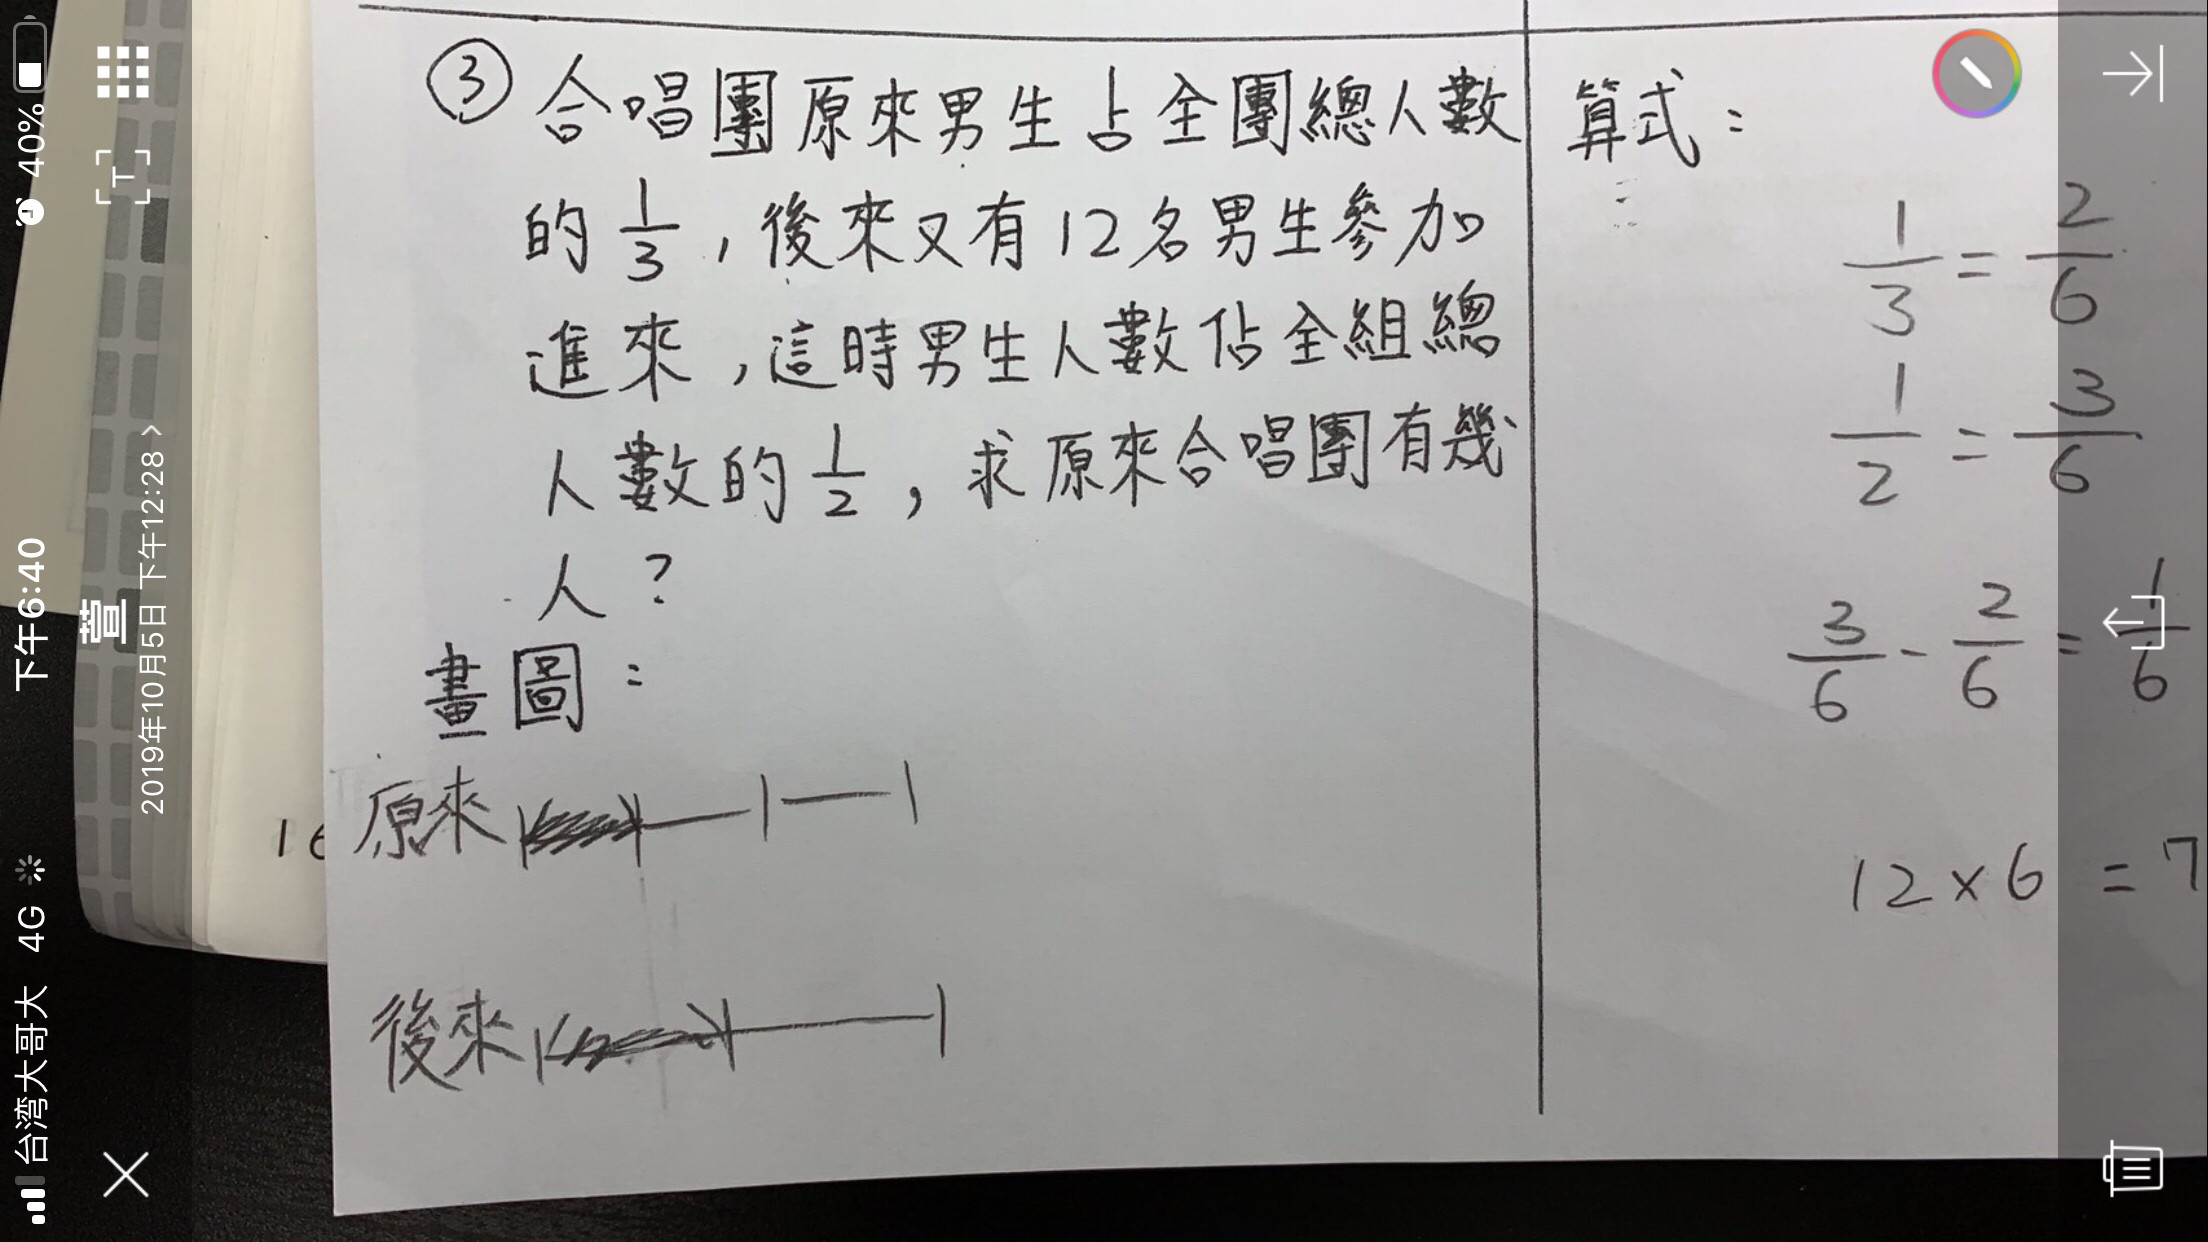 ③ 合唱團原來男生占全團總人數
的 1/3，後來又有12名男生參加
進來，這時男生人數佔全組總
人數的 1/2，求原來合唱團有幾
人？
畫圖：
原來
後來
算式：
1/3 = 2/6
1/2 = 3/6
3/6 - 2/6 = 1/6
12×6 = 7
下午6:40
40%
台湾大哥大 4G
萱
2019年10月5日 下午12:28 >
T